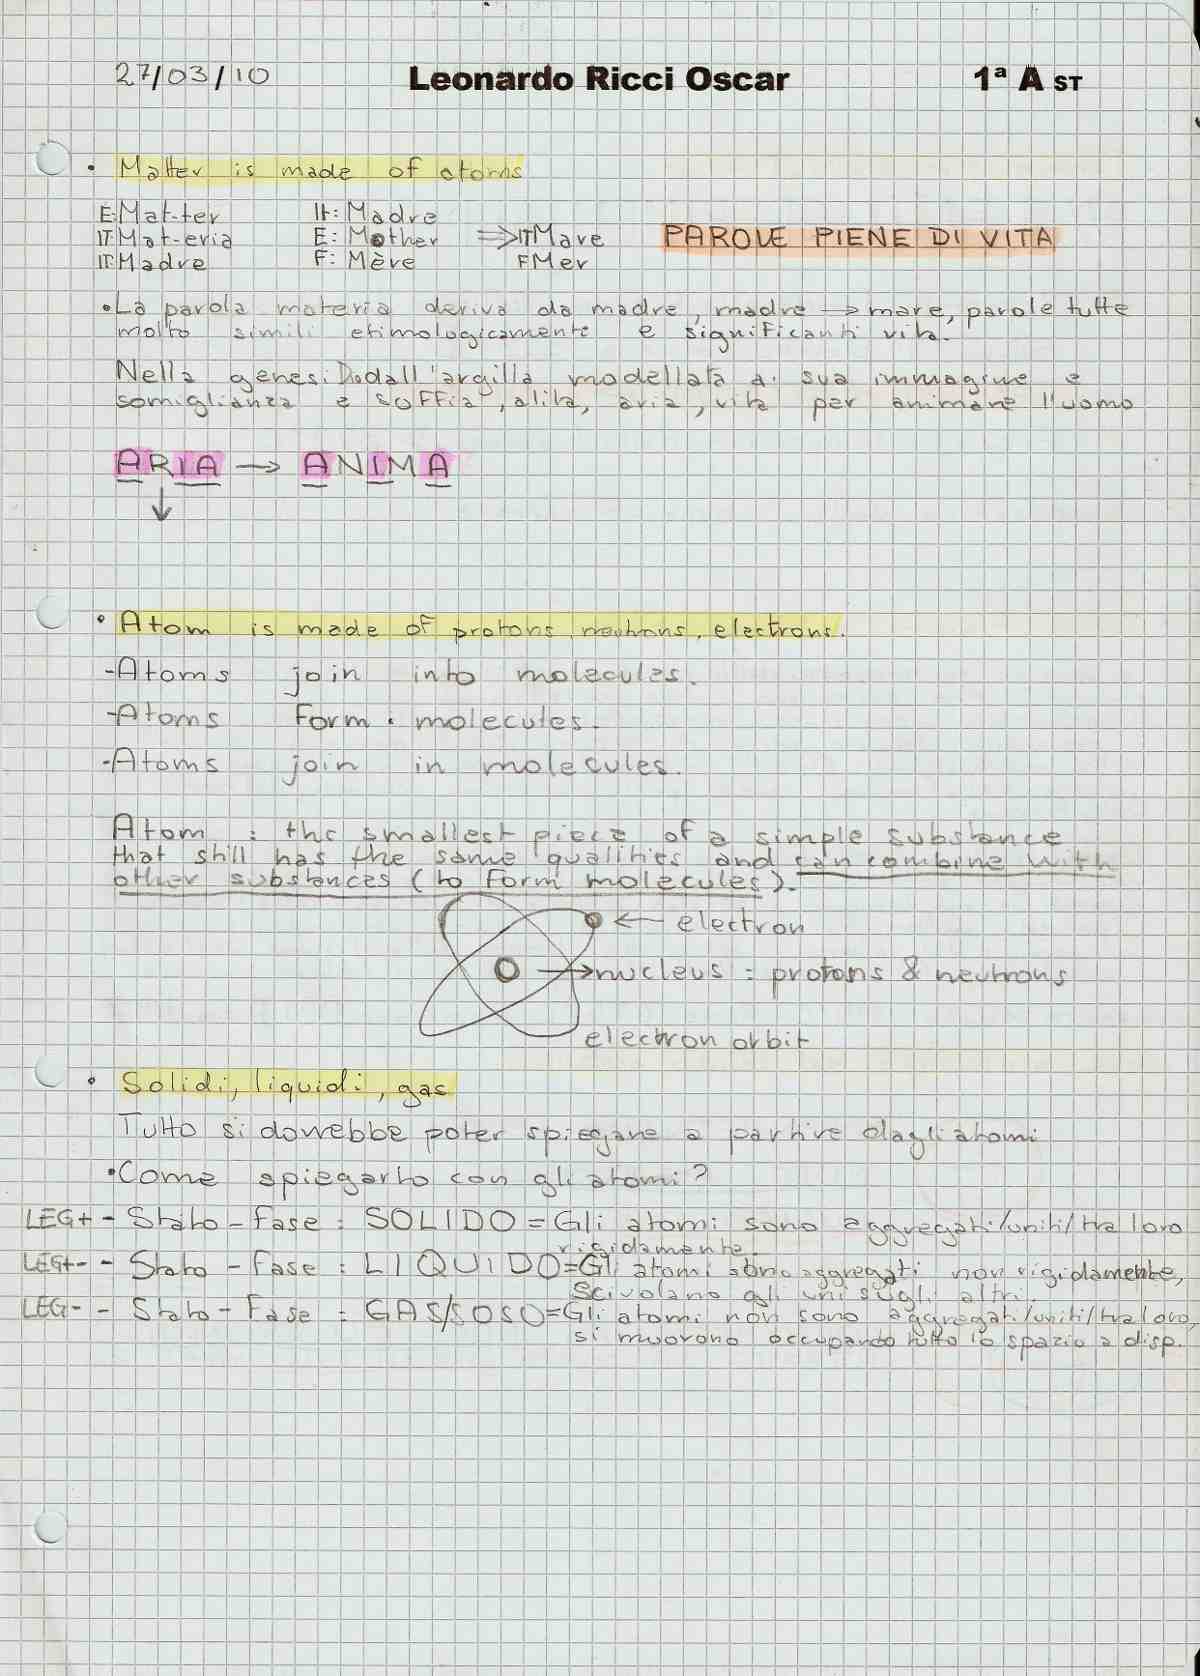 27/03/10 Leonardo Ricci Oscar 1ª A ST
• Matter is made of atoms
E: Mat-ter It: Madre
IT: Mat-eria E: Mother => IT Mare PAROLE PIENE DI VITA
IT: Madre F: Mère F Mer
• La parola materia deriva da madre, madre → mare, parole tutte
molto simili etimologicamente e significanti vita.
Nella genesi Dio dall'argilla modellata a sua immagine e
somiglianza e soffia, alita, aria, vita per animare l'uomo
ARIA → ANIMA
↓
• Atom is made of protons, neutrons, electrons.
- Atoms join into molecules.
- Atoms form : molecules.
- Atoms join in molecules.
Atom : the smallest piece of a simple substance
that still has the same qualities and can combine with
other substances (to form molecules).
← electron
→ nucleus = protons & neutrons
electron orbit
• Solidi, liquidi, gas
Tutto si dovrebbe poter spiegare a partire dagli atomi
• Come spiegarlo con gli atomi?
LEG+ - Stato - Fase : SOLIDO = Gli atomi sono aggregati/uniti/tra loro
rigidamente.
LEG+- - Stato - Fase : LIQUIDO = Gli atomi sono aggregati non rigidamente,
Scivolano gli uni sugli altri.
LEG- - Stato - Fase : GAS/SOSO = Gli atomi non sono aggregati/uniti/tra loro,
si muovono occupando tutto lo spazio a disp.